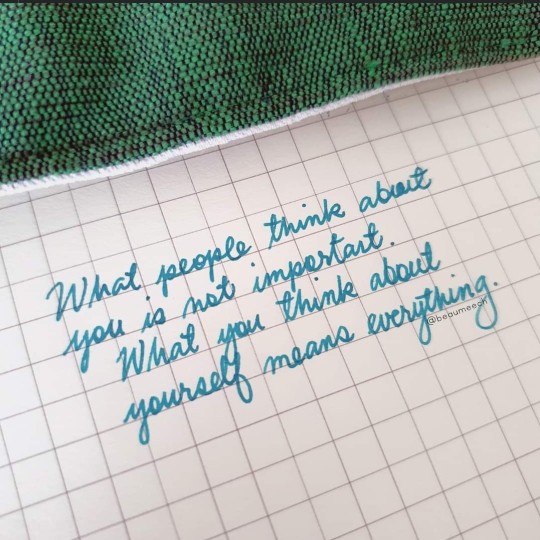 What people think about
you is not important.
What you think about
yourself means everything.
@beaumeesh